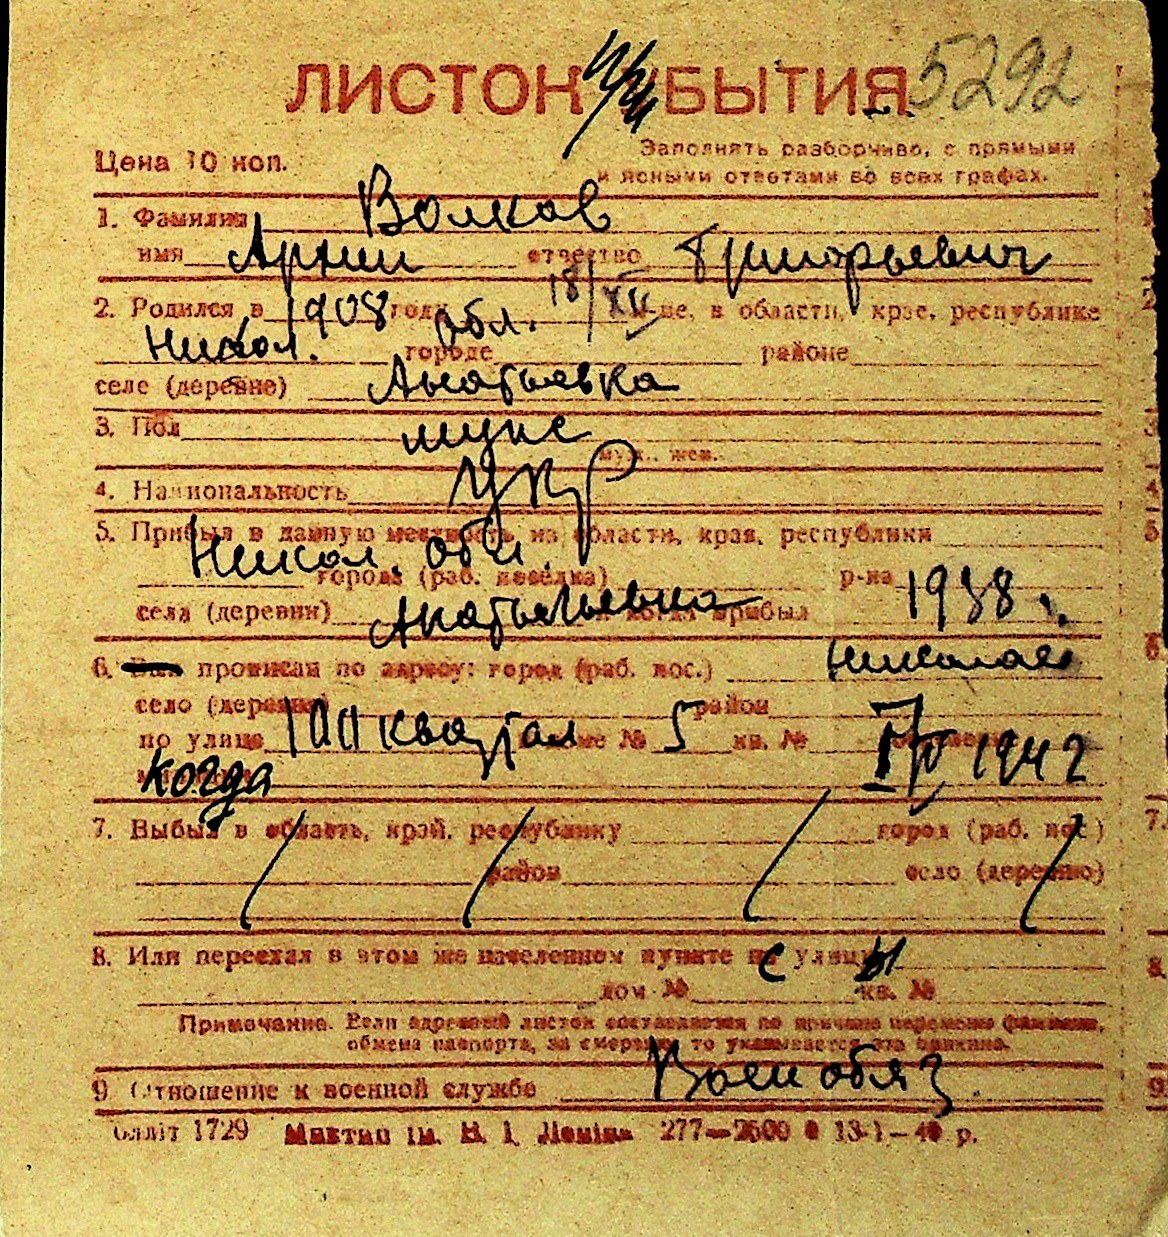 ЛИСТОК БЫТИЯ 5292
Цена 10 коп.
Заполнять разборчиво, с прямыми
и ясными ответами во всех графах.
1. Фамилия Волков
имя Архип отчество Григорьевич
2. Родился в 1908 году 18/XII це, в области, крае, республике
Никол. обл. городе районе
селе (деревне)
3. Пол муж
муж., жен.
4. Национальность укр
5. Прибыл в данную местность из области, края, республики
Никол. обл. города (раб. поселка) р-на
села (деревни) и когда прибыл 1938 г.
6. прописан по адресу: город (раб. пос.) Николаев
село (деревня) район
по улице квартал № 5 кв. № 1942
когда
7. Выбыл в область, край, республику город (раб. пос.)
район село (деревню)
8. Или переехал в этом же населенном пункте с улицы
дом № кв. №
Примечание. Если адресный листок составляется по причине перемены фамилии,
обмена паспорта, за смертью, то указывается эта причина.
9. Отношение к военной службе Военобяз
Облліт 1729 277—2500 13-1—40 р.